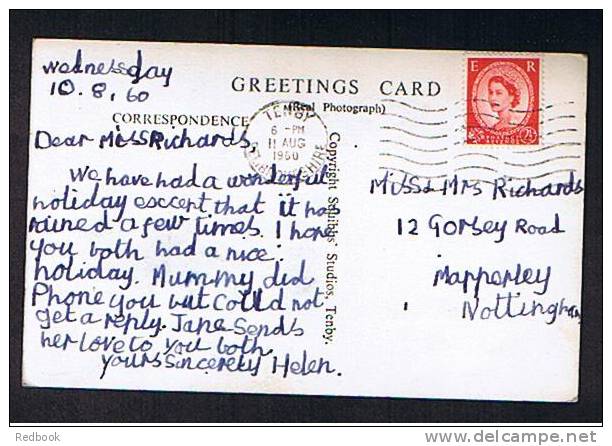 Wednesday
10.8.60
GREETINGS CARD
(Real Photograph)
CORRESPONDENCE
E R
TENBY
6 - PM
11 AUG
1960
PEMBROKESHIRE
Dear Miss Richards,
We have had a wonderful
holiday esccept that it has
rained a few times. I hope
you both had a nice
holiday. Mummy did
Phone you but could not
get a reply. Jane Sends
her love to you both.
yours Sincerely Helen.
Copyright Squibbs' Studios, Tenby.
Miss & Mrs Richards
12 Gorsey Road
Mapperley
Nottingham
Redbook
www.delcampe.net